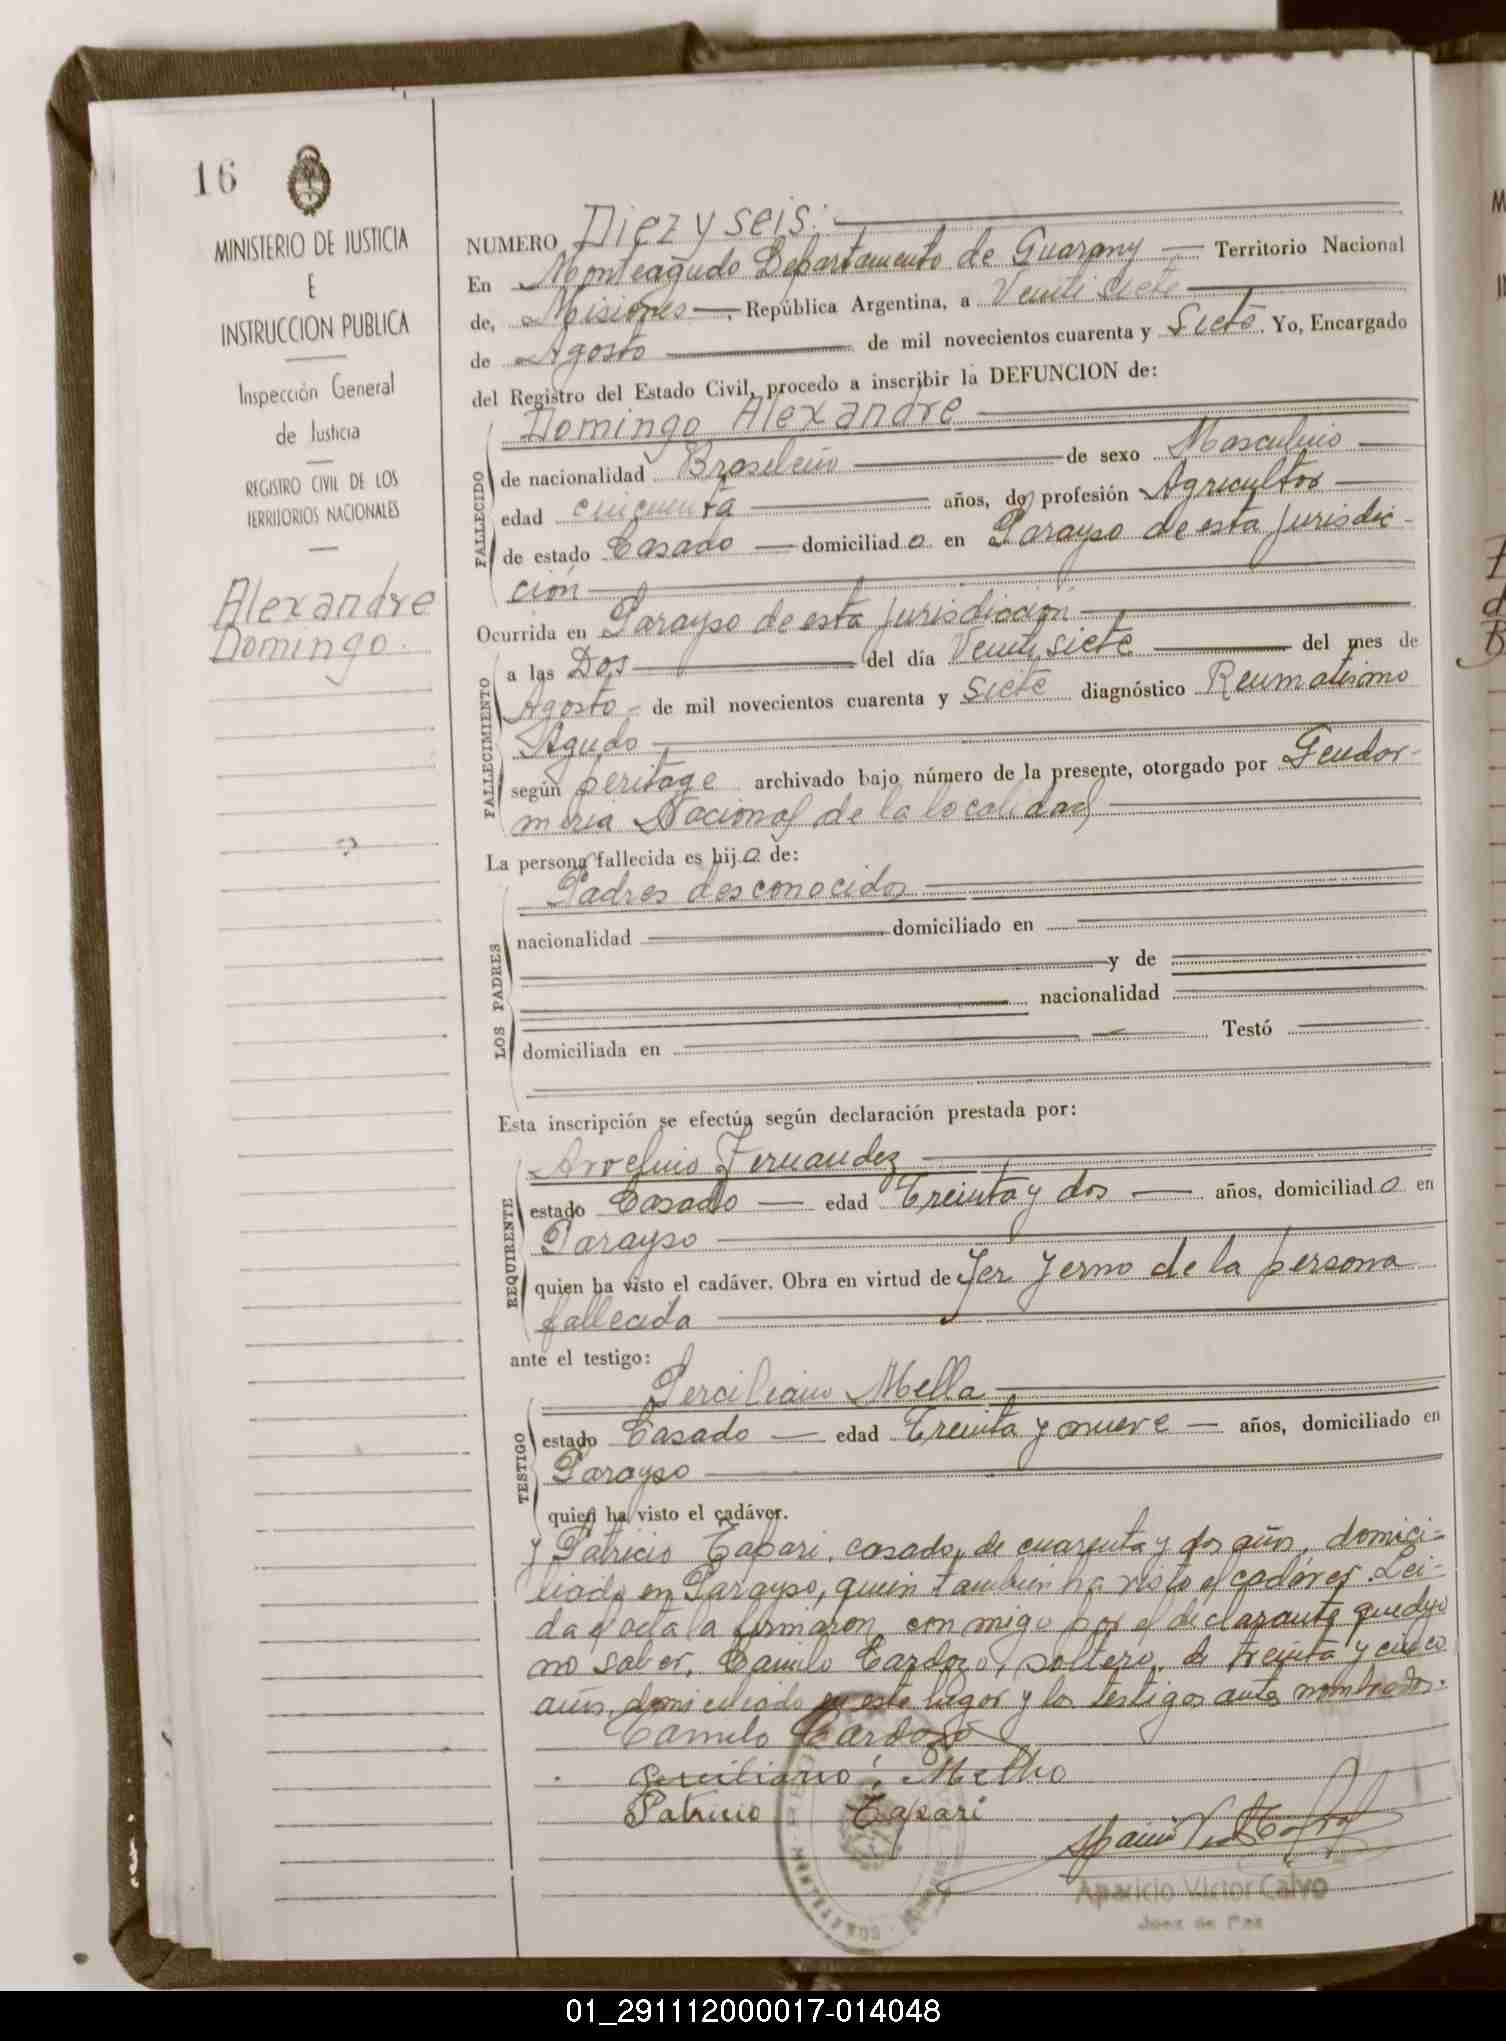 16
MINISTERIO DE JUSTICIA
E
INSTRUCCION PUBLICA
Inspección General
de Justicia
REGISTRO CIVIL DE LOS
TERRITORIOS NACIONALES
Alexandre
Domingo.
NUMERO Diez y seis:
En Monteagudo Departamento de Guarany Territorio Nacional
de, Misiones, República Argentina, a Veinti siete
de Agosto de mil novecientos cuarenta y Siete. Yo, Encargado
del Registro del Estado Civil, procedo a inscribir la DEFUNCION de:
FALLECIDO
Domingo Alexandre
de nacionalidad Brasileño de sexo Masculino
edad cincuenta años, de profesión Agricultor
de estado Casado domiciliado en Parayso de esta jurisdic-
ción
Ocurrida en Parayso de esta jurisdicción
FALLECIMIENTO
a las Dos del día Veinti siete del mes de
Agosto de mil novecientos cuarenta y Siete diagnóstico Reumatismo
Agudo
según peritage archivado bajo número de la presente, otorgado por Gendar-
meria Nacional de la localidad
La persona fallecida es hijo de:
LOS PADRES
Padres desconocidos
nacionalidad domiciliado en
y de
nacionalidad
domiciliada en Testó
Esta inscripción se efectúa según declaración prestada por:
REQUIRENTE
Fernandez
estado Casado edad Treinta y dos años, domiciliado en
Parayso
quien ha visto el cadáver. Obra en virtud de Ser Yerno de la persona
fallecida
ante el testigo:
TESTIGO
Perciliano Mella
estado Casado edad Treinta y nueve años, domiciliado en
Parayso
quien ha visto el cadáver.
y Patricio Tapari, casado, de cuarenta y dos años, domici-
liado en Parayso, quien tambien ha visto el cadáver. Lei-
da el acta la firmaron conmigo por el declarante que dijo
no saber, Camilo Cardozo, soltero, de treinta y cinco
años, domiciliado en este lugar y los testigos antes nombrados.
Camilo Cardozo
Perciliano Mello
Patricio Tapari
Aparicio Victor Calvo
Juez de Paz
01_291112000017-014048